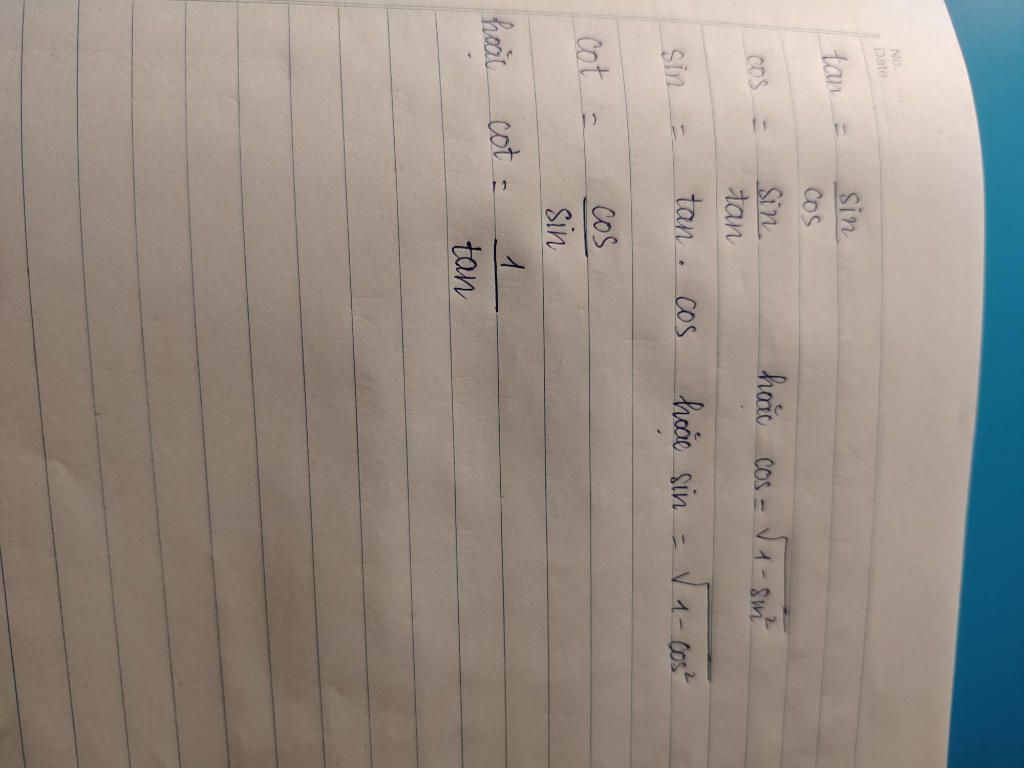 No.
Date
tan = sin/cos
cos = sin/tan hoặc cos = √(1 - sin²)
sin = tan . cos hoặc sin = √(1 - cos²)
cot = cos/sin
hoặc cot = 1/tan